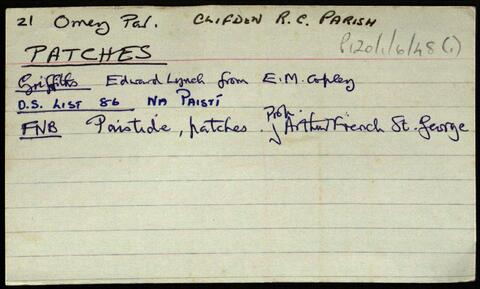 21 Omey Par. CLIFDEN R.C. PARISH
P120/1/6/48(i)
PATCHES
Griffiths Edward Lynch from E.M. Copley
O.S. LIST 86 NA PAISTÍ
FNB Paistide, patches. Prop. Arthur French St. George